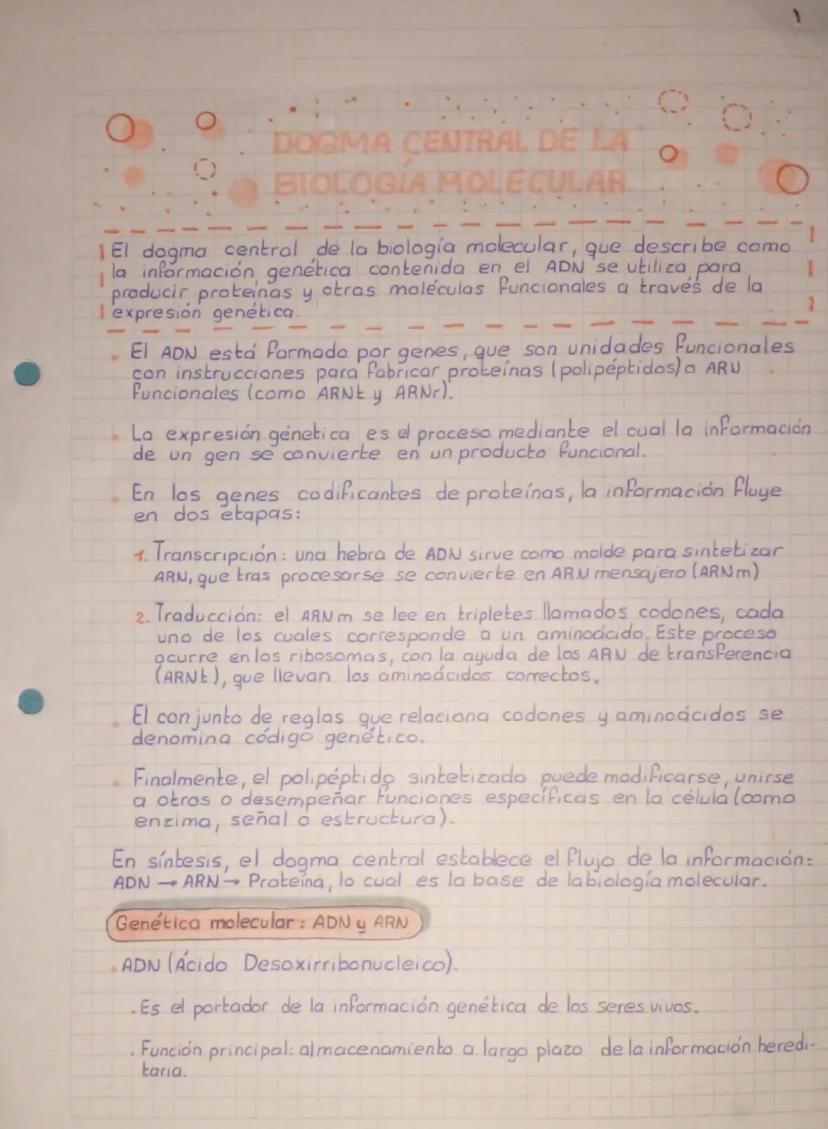 1
DOGMA CENTRAL DE LA
BIOLOGÍA MOLECULAR
El dogma central de la biología molecular, que describe como
la información genética contenida en el ADN se utiliza para
producir proteínas y otras moléculas funcionales a través de la
expresión genética.
• El ADN está formado por genes, que son unidades funcionales
con instrucciones para fabricar proteínas (polipéptidos) o ARN
funcionales (como ARNt y ARNr).
• La expresión génetica es el proceso mediante el cual la información
de un gen se convierte en un producto funcional.
• En los genes codificantes de proteínas, la información fluye
en dos etapas:
1. Transcripción: una hebra de ADN sirve como molde para sintetizar
ARN, que tras procesarse se convierte en ARN mensajero (ARNm)
2. Traducción: el ARNm se lee en tripletes llamados codones, cada
uno de los cuales corresponde a un aminoácido. Este proceso
ocurre en los ribosomas, con la ayuda de los ARN de transferencia
(ARNt), que llevan los aminoácidos correctos.
• El conjunto de reglas que relaciona codones y aminoácidos se
denomina código genético.
• Finalmente, el polipéptido sintetizado puede modificarse, unirse
a otros o desempeñar funciones específicas en la célula (como
enzima, señal o estructura).
En síntesis, el dogma central establece el flujo de la información:
ADN → ARN → Proteína, lo cual es la base de la biología molecular.
Genética molecular: ADN y ARN
• ADN (Ácido Desoxirribonucleico).
• Es el portador de la información genética de los seres vivos.
• Función principal: almacenamiento a largo plazo de la información heredi-
taria.